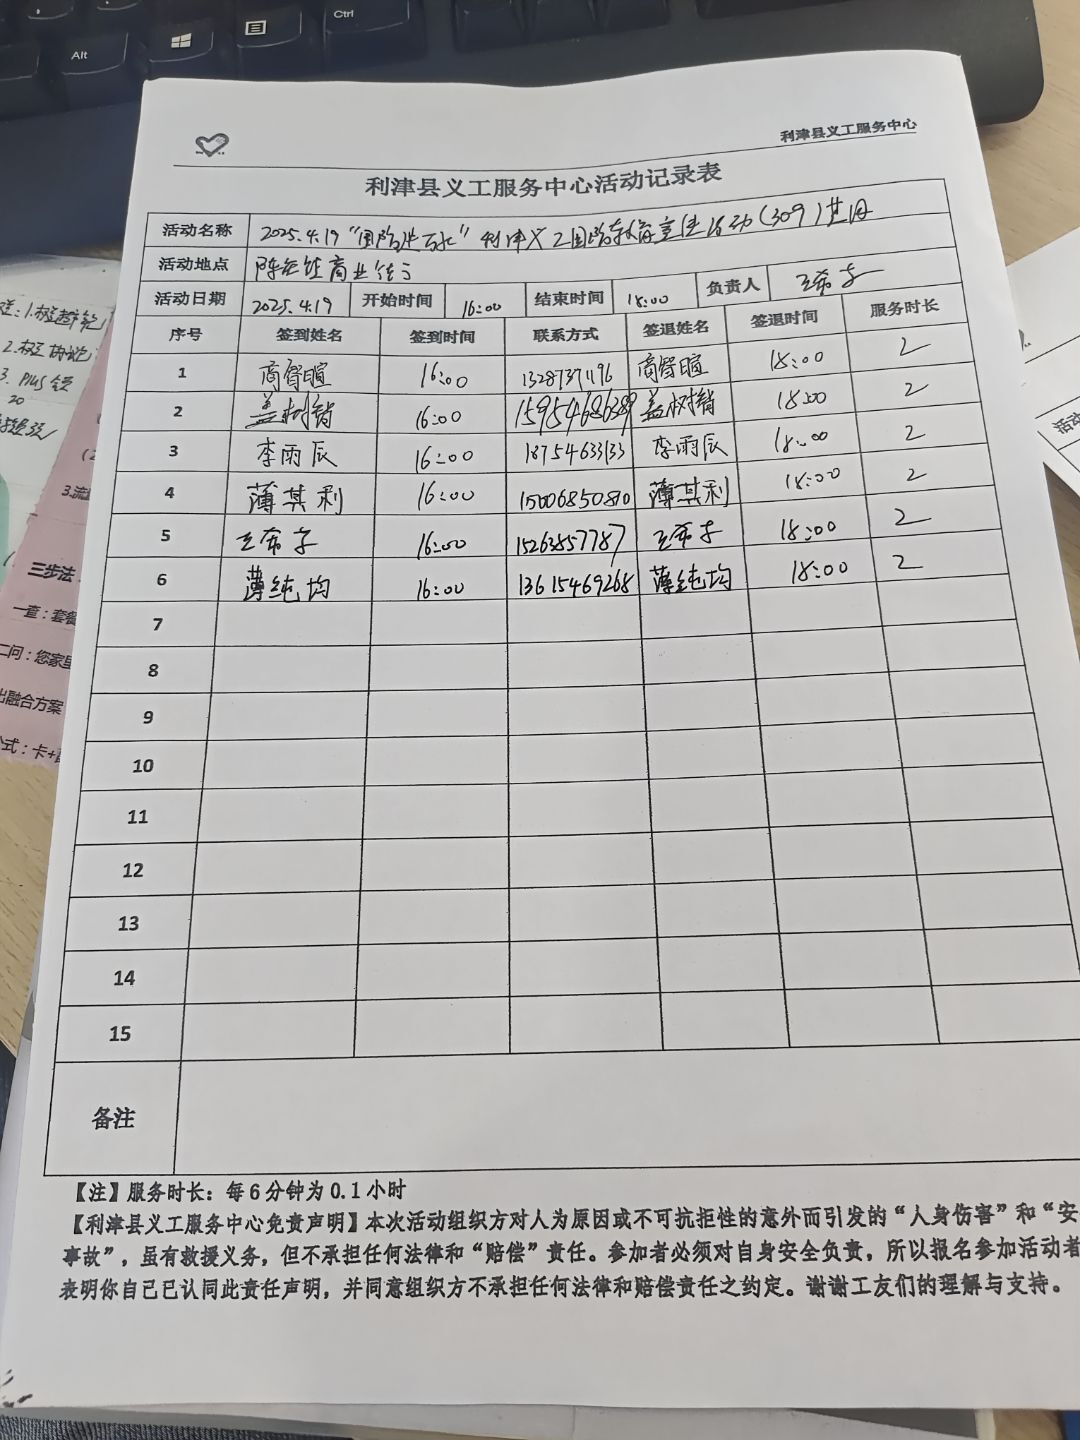 Alt
Ctrl
利津县义工服务中心
利津县义工服务中心活动记录表
活动名称 2025.4.19 利津义工国防教育宣传活动(309)
活动地点 陈庄镇商业街
活动日期 2025.4.19 开始时间 16:00 结束时间 18:00 负责人
序号 签到姓名 签到时间 联系方式 签退姓名 签退时间 服务时长
1 商智暄 16:00 13287371196 商智暄 18:00 2
2 盖树销 16:00 15954686389 盖树销 18:00 2
3 李雨辰 16:00 18754633133 李雨辰 18:00 2
4 薄其利 16:00 15006850810 薄其利 18:00 2
5 16:00 15263857787 18:00 2
6 薄纯均 16:00 13615469268 薄纯均 18:00 2
7
8
9
10
11
12
13
14
15
备注
【注】服务时长：每6分钟为0.1小时
【利津县义工服务中心免责声明】本次活动组织方对人为原因或不可抗拒性的意外而引发的“人身伤害”和“安
事故”，虽有救援义务，但不承担任何法律和“赔偿”责任。参加者必须对自身安全负责，所以报名参加活动者
表明你自己已认同此责任声明，并同意组织方不承担任何法律和赔偿责任之约定。谢谢工友们的理解与支持。
三步法
一查：套餐
二问：您家里
出融合方案
公式：卡+
活动